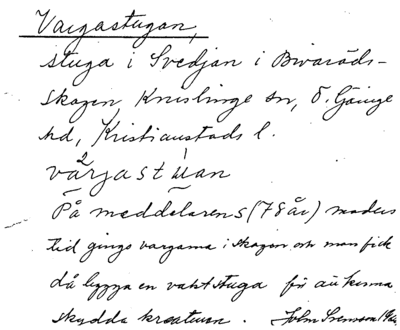 Vargastugan,
stuga i Svedjan i Bivaröds-
skogen, Knislinge sn, Ö. Göinge
hd, Kristianstads l.
vàrjastúan
På meddelarens (78 år) moders
tid gingo vargarna i skogen och man fick
då bygga en vaktstuga för att kunna
skydda kreaturen. John Svensson